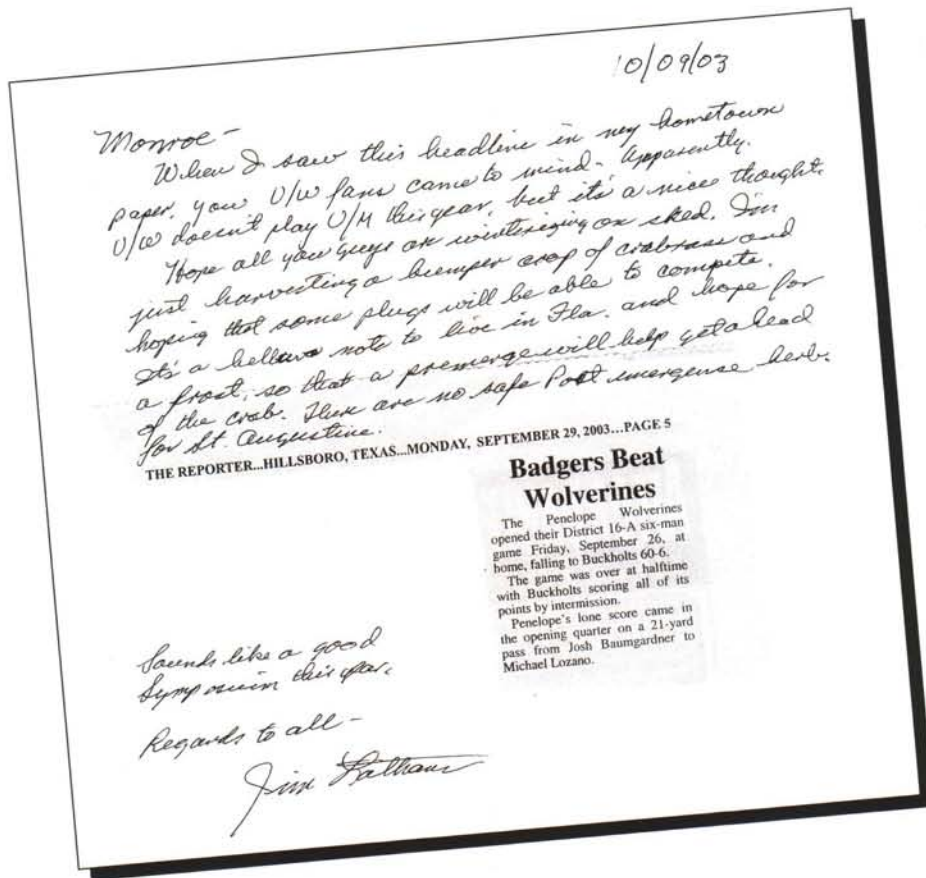 10/09/03
Monroe -
When I saw this headline in my hometown
paper, you U/W fans came to mind. Apparently.
U/W doesn't play U/M this year, but it's a nice thought.
Hope all you guys are winterizing on sked. I'm
just harvesting a bumper crop of crabgrass and
hoping that some plugs will be able to compete.
It's a helluva note to live in Fla. and hope for
a frost, so that a premerge will help get ahead
of the crab. There are no safe Post emergense herb.
for St. Augustine.
THE REPORTER...HILLSBORO, TEXAS...MONDAY, SEPTEMBER 29, 2003...PAGE 5
Badgers Beat
Wolverines
The Penelope Wolverines
opened their District 16-A six-man
game Friday, September 26, at
home, falling to Buckholts 60-6.
The game was over at halftime
with Buckholts scoring all of its
points by intermission.
Penelope's lone score came in
the opening quarter on a 21-yard
pass from Josh Baumgardner to
Michael Lozano.
Sounds like a good
Symposium this year.
Regards to all -
Jim Latham